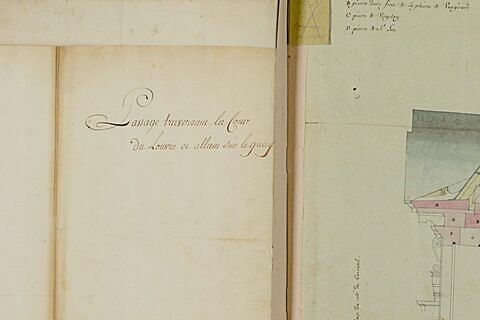 Passage traversant la Cour
Du Louvre et allant sur le quay
B pierre dure fine de la plaine de Vaugirard
C pierre de Vergelez
D pierre de St Leu
A